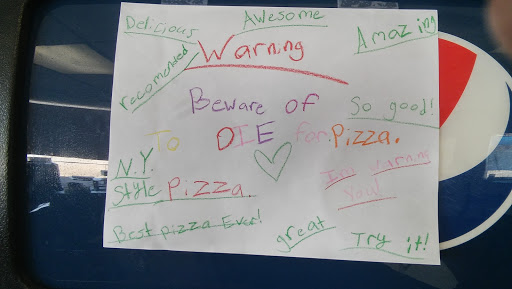 Delicious
Awesome
Amazing
recomended
Warning
Beware of
So good!
To DIE for Pizza.
N.Y.
Style Pizza.
Im warning
You!
Best pizza Ever!
great
Try it!